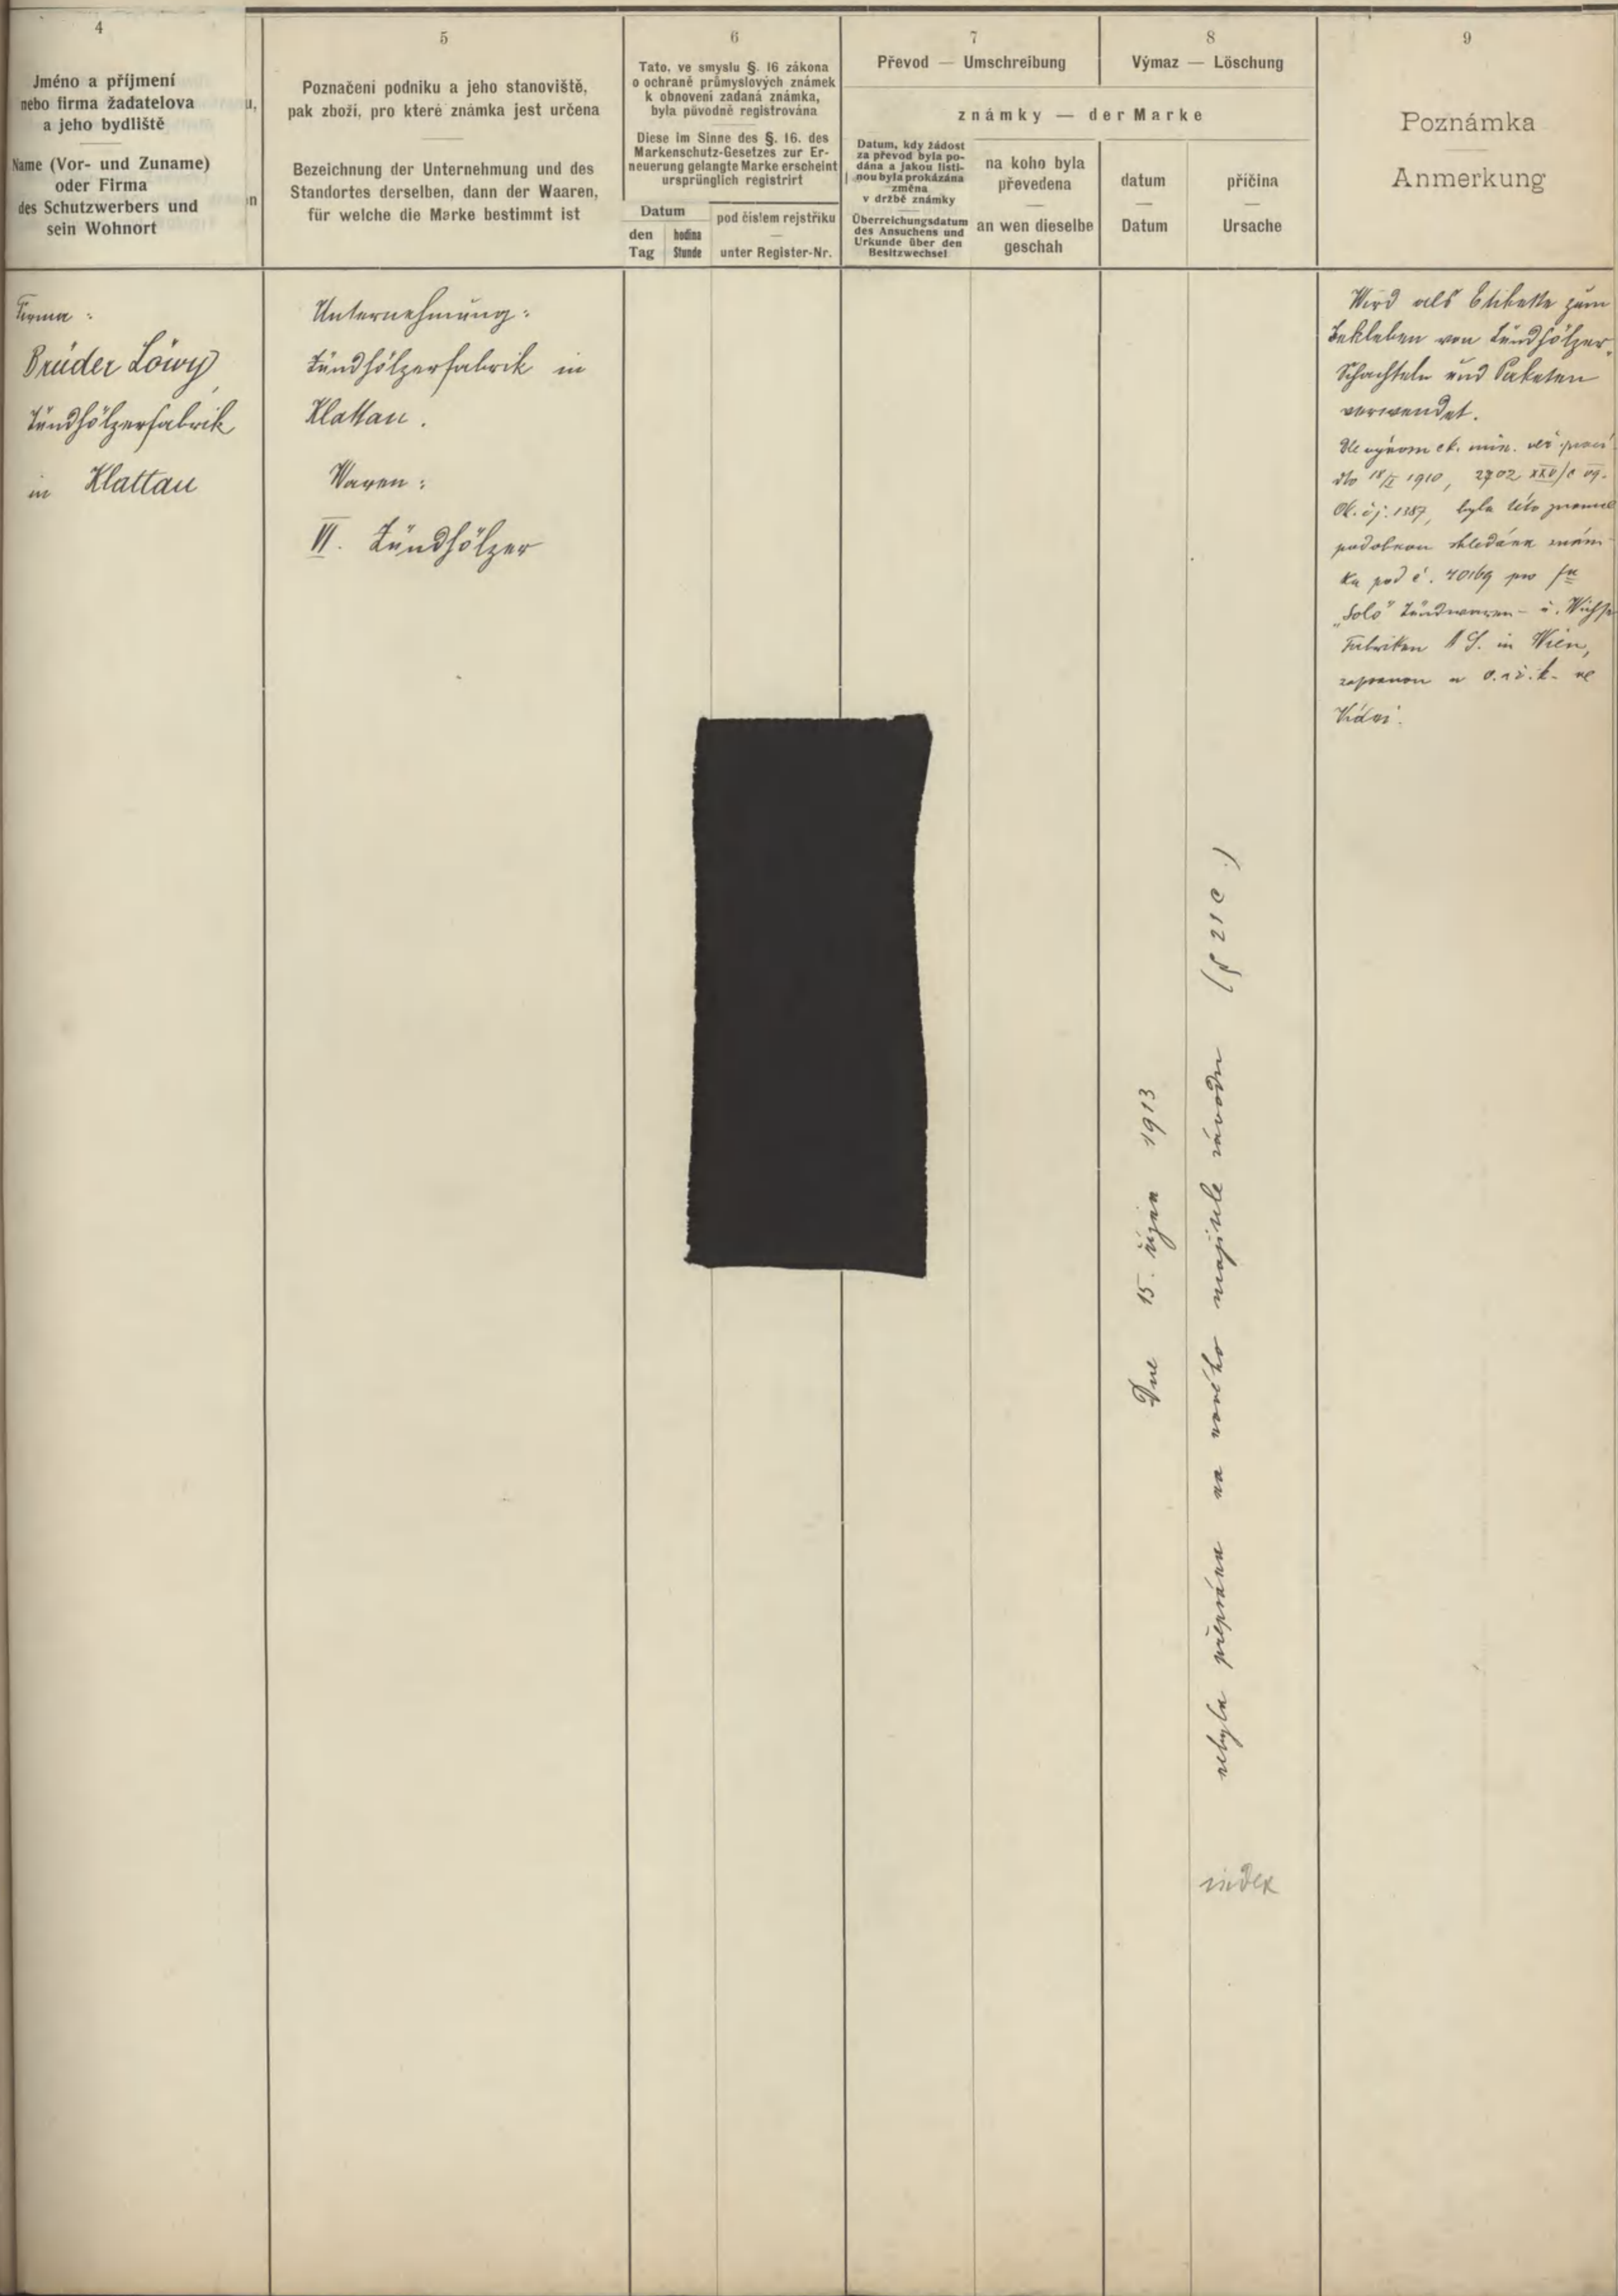 4
Jméno a příjmení
nebo firma žadatelova
a jeho bydliště
Name (Vor- und Zuname)
oder Firma
des Schutzwerbers und
sein Wohnort
u,
n
5
Poznačení podniku a jeho stanoviště,
pak zboží, pro které známka jest určena
Bezeichnung der Unternehmung und des
Standortes derselben, dann der Waaren,
für welche die Marke bestimmt ist
6
Tato, ve smyslu §. 16 zákona
o ochraně průmyslových známek
k obnovení zadaná známka,
byla původně registrována
Diese im Sinne des §. 16. des
Markenschutz-Gesetzes zur Er-
neuerung gelangte Marke erscheint
ursprünglich registrirt
Datum
den hodina
Tag Stunde
pod číslem rejstříku
—
unter Register-Nr.
7
Převod — Umschreibung
8
Výmaz — Löschung
známky — der Marke
Datum, kdy žádost
za převod byla po-
dána a jakou listi-
nou byla prokázána
změna
v držbě známky
Überreichungsdatum
des Ansuchens und
Urkunde über den
Besitzwechsel
na koho byla
převedena
—
an wen dieselbe
geschah
datum
—
Datum
příčina
—
Ursache
9
Poznámka
Anmerkung
Firma :
Brüder Löwy,
Zündhölzerfabrik
in Klattau
Unternehmung :
Zündhölzerfabrik in
Klattau.
Waren :
VI. Zündhölzer
Dne 15. října 1913
nebyla přepsána na nového majitele závodu (§ 21 c.)
index
Wird als Etikette zum
Bekleben von Zündhölzer-
Schachteln und Paketen
verwendet.
Dle výnosu c k. min. veř. prací
dto 1910, 2702 XXV/c
čj. 1387, byla této známce
podobnou shledána znám-
ka pod č. 40169 pro fu
„Solo" Zündwaren- u. Wichse
Fabriken A G. in Wien,
zapsanou u o. a ž. k. ve
Vídni.